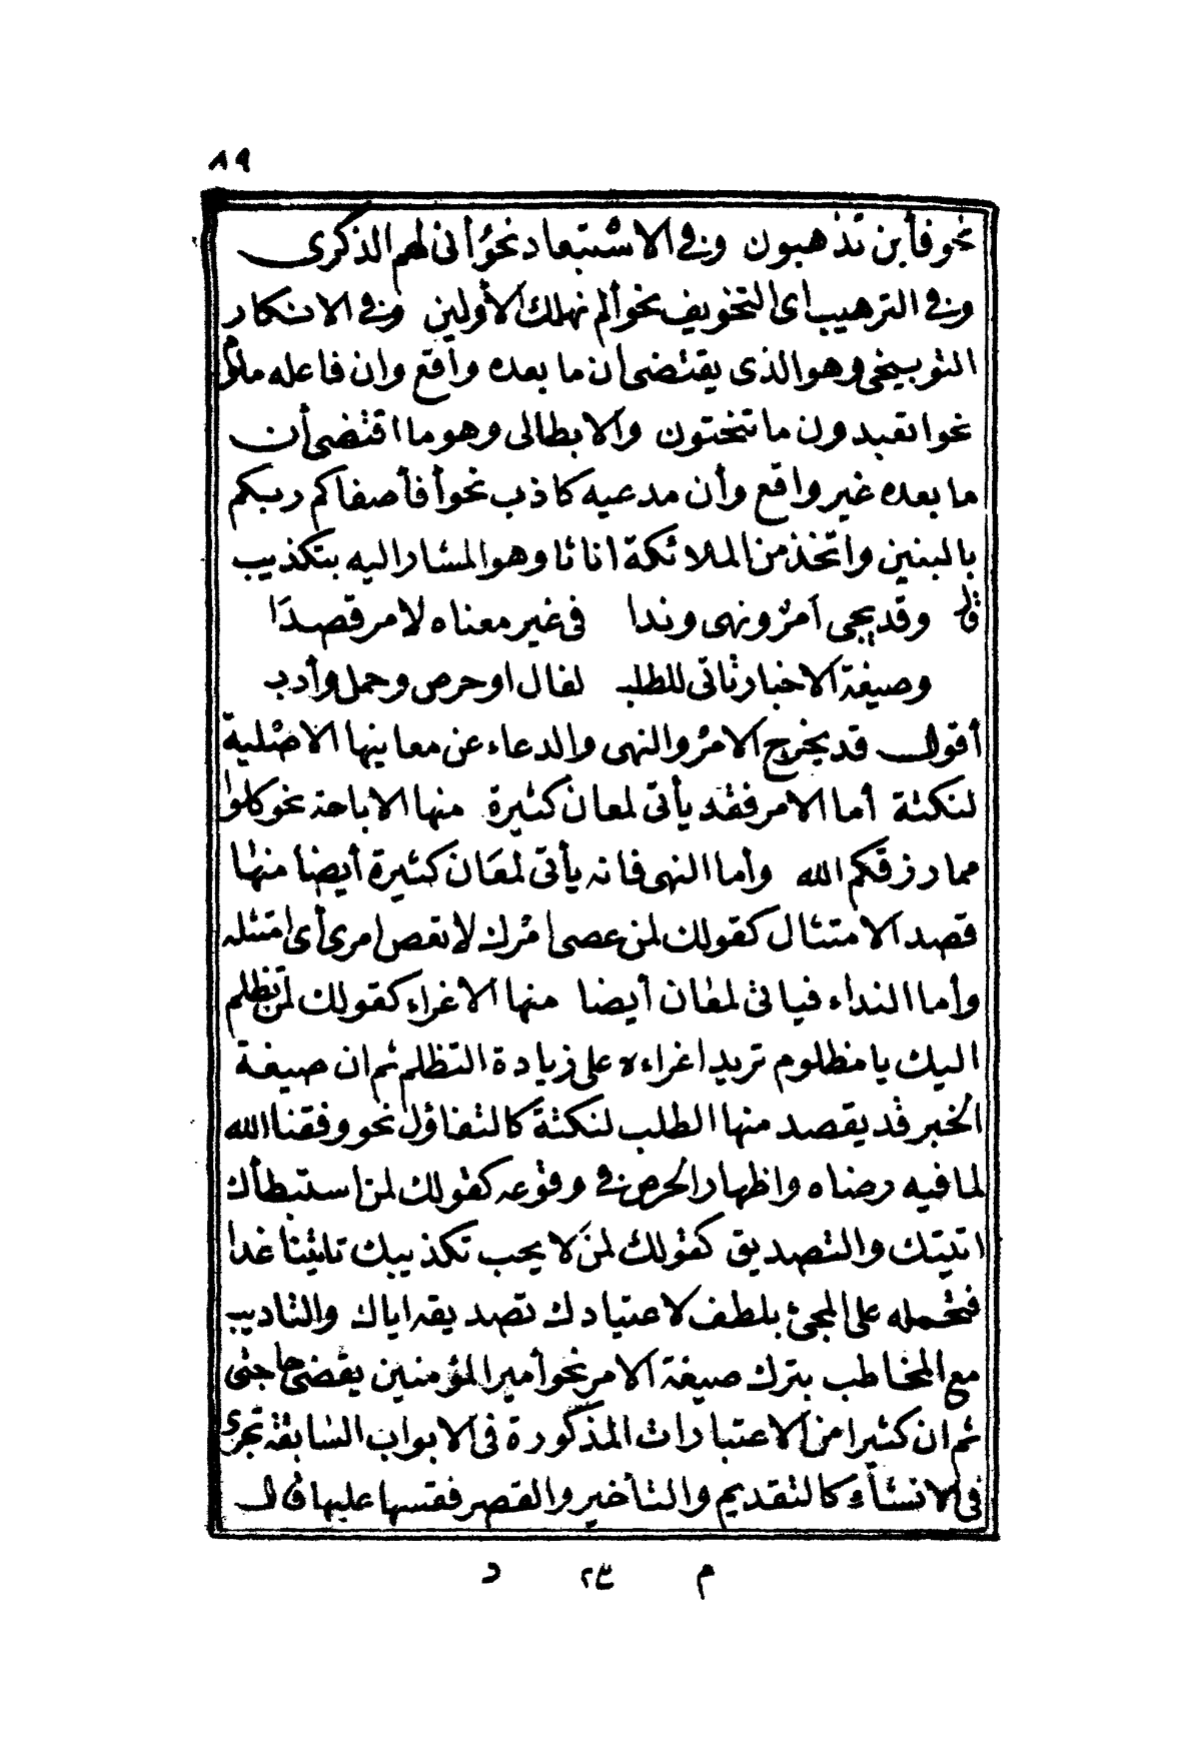 ٨٩
نحو فأين تذهبون وفى الاستبعاد نحو أنى لهم الذكرى
وفى الترهيب اى التخويف نحو ألم نهلك الأولين وفى الانكار
التوبيخى وهو الذى يقتضى أن ما بعده واقع وان فاعله ملوم
نحو اتعبدون ما تنحتون والابطالى وهو ما اقتضى أن
ما بعده غير واقع وأن مدعيه كاذب نحو أفأصفاكم ربكم
بالبنين واتخذ من الملائكة اناثا وهو المشار اليه بتكذيب
قال وقد يجى امر ونهى وندا فى غير معناه لامر قصدا
وصيغة الاخبار تاتى للطلب لفال او حرص وحمل وأدب
أقول قد يخرج الامر والنهى والدعاء عن معانيها الاصلية
لنكتة أما الامر فقد يأتى لمعان كثيرة منها الاباحة نحو كلوا
مما رزقكم الله وأما النهى فانه يأتى لمعان كثيرة أيضا منها
قصد الامتثال كقولك لمن عصى امرك لا تعص امرى أى امتثله
وأما النداء فياتى لمعان أيضا منها الاغراء كقولك لمن تظلم
اليك يا مظلوم تريد اغراءه على زيادة التظلم ثم ان صيغة
الخبر قد يقصد منها الطلب لنكتة كالتفاؤل نحو وفقنا الله
لما فيه رضاه واظهار الحرص فى وقوعه كقولك لمن استبطأك
اتيتك والتصديق كقولك لمن لا يحب تكذيبك تاتينا غدا
فتحمله على المجئ بلطف لاعتيادك تصديقه اياك والتاديب
مع المخاطب بترك صيغة الامر نحو أمير المؤمنين يقضى حاجتى
ثم ان كثيرا من الاعتبارات المذكورة فى الابواب السابقة تجرى
فى الانشاء كالتقديم والتأخير والقصر فقسها عليها قال
م ٢٣ د